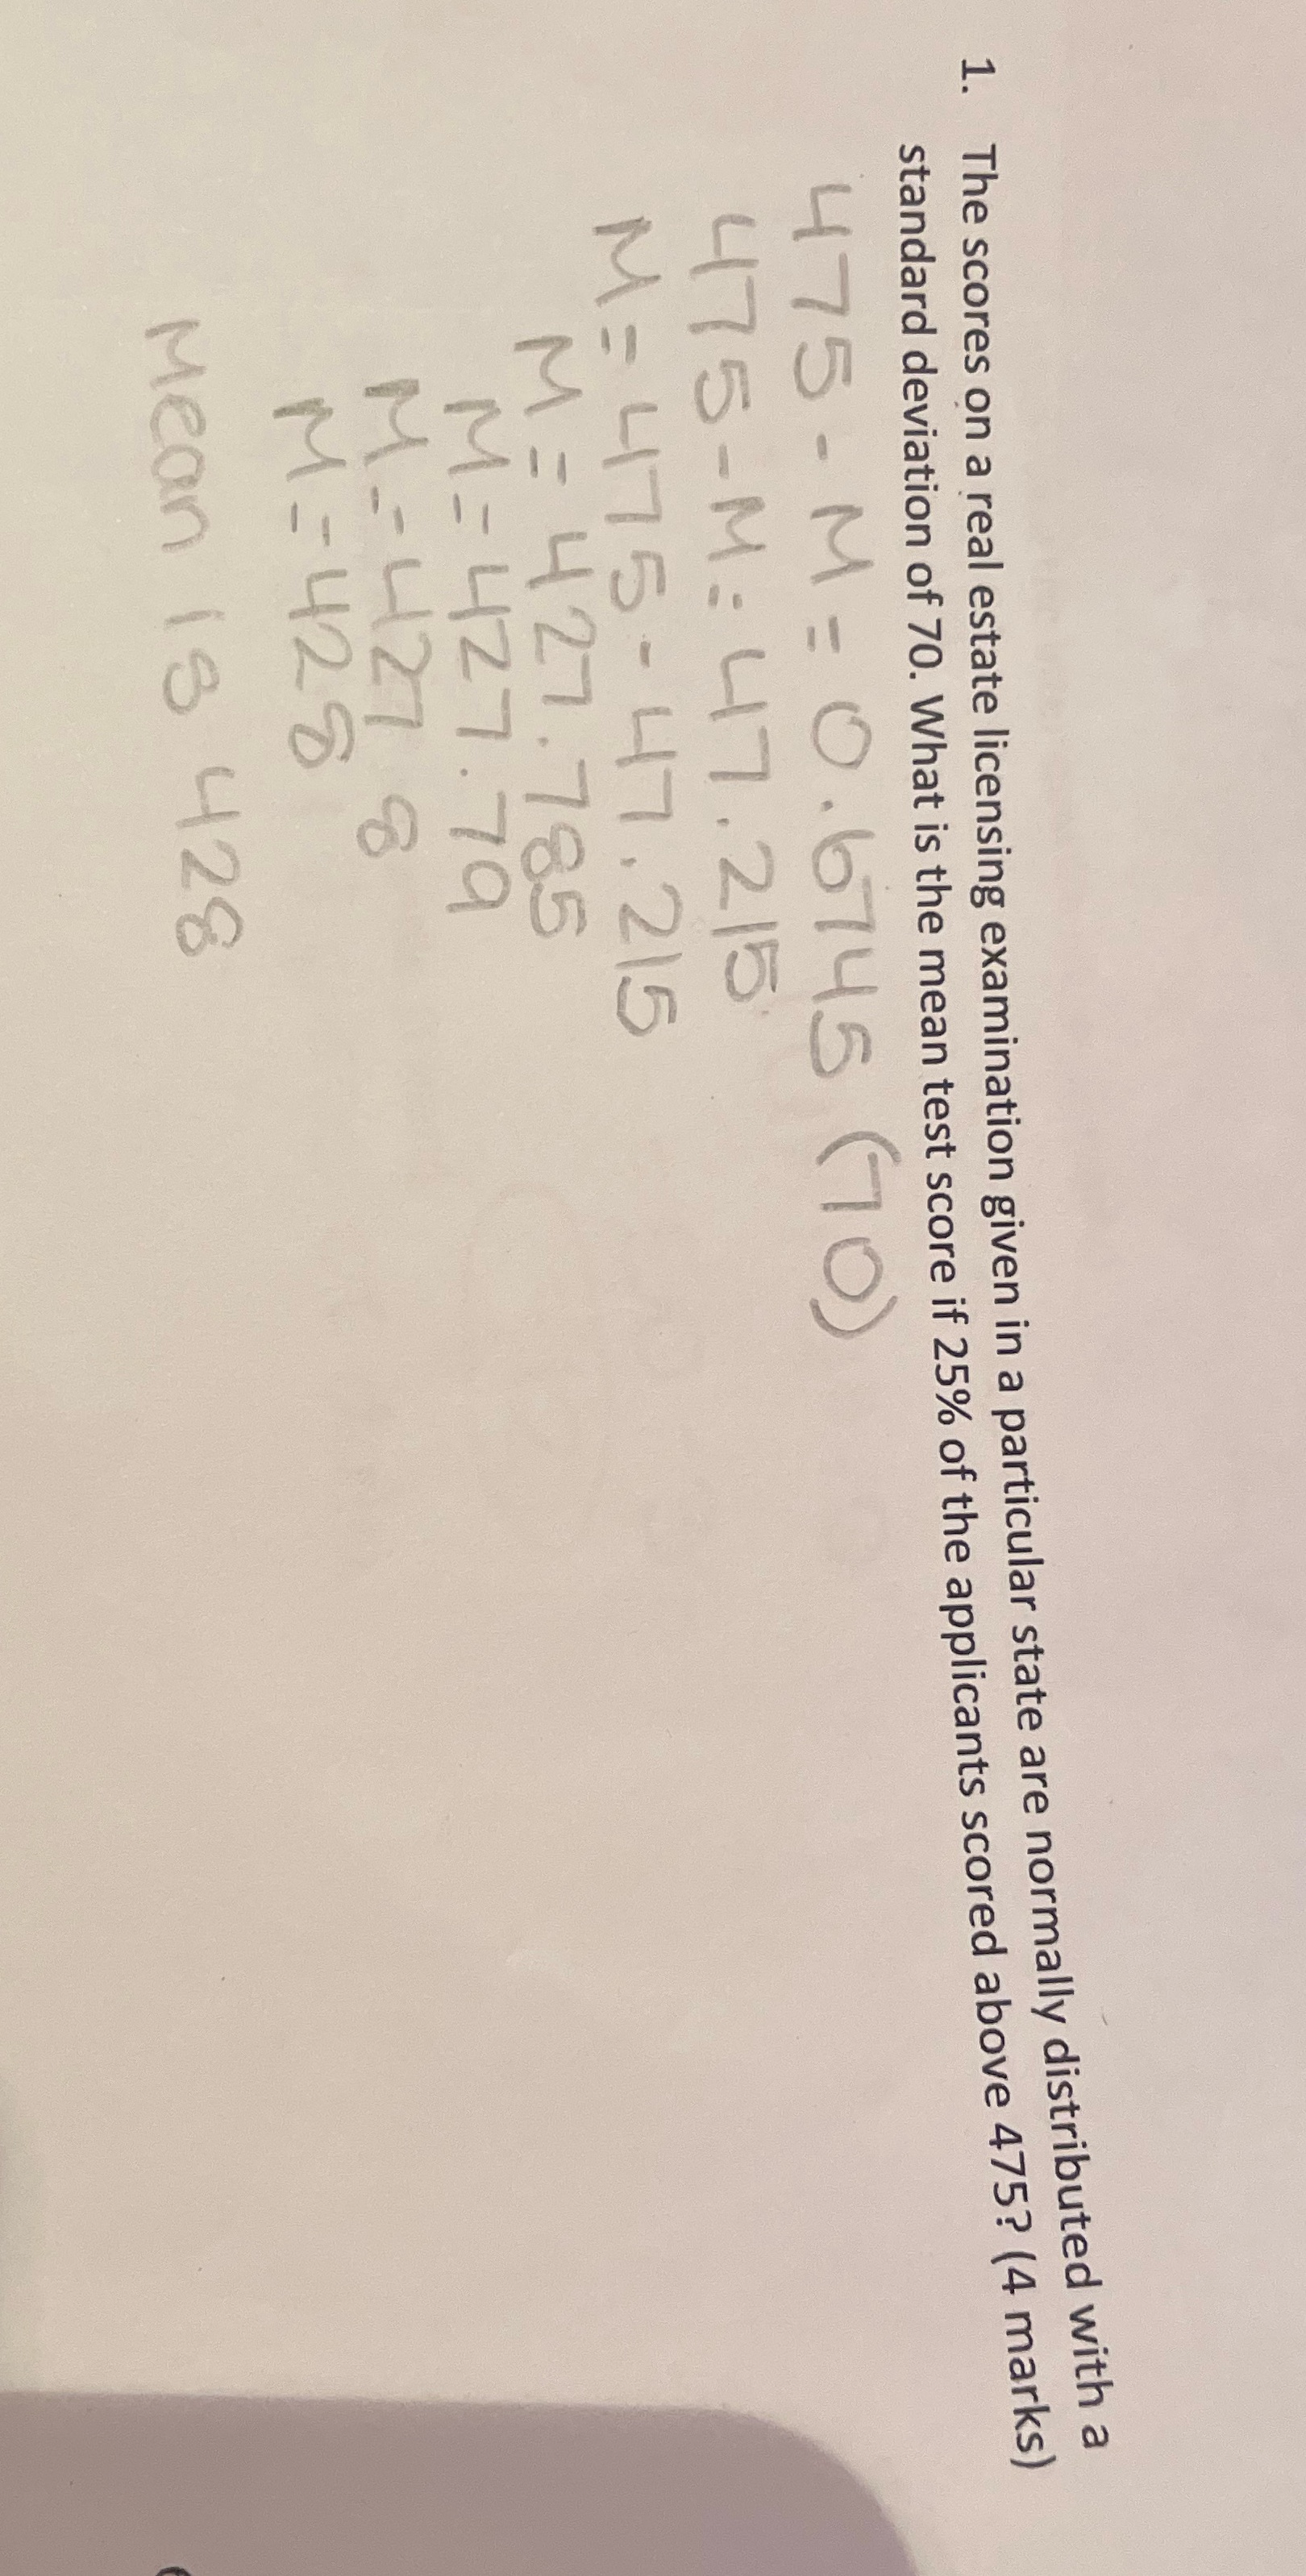 1. The scores on a real estate licensing examination given in a particular state are normally distributed with a
standard deviation of 70. What is the mean test score if 25% of the applicants scored above 475? (4 marks)
475 - M = 0.6745 (70)
475 - M = 47.215
M = 475 - 47.215
M = 427.785
M = 427.79
M = 427 8
M = 428
Mean is 428